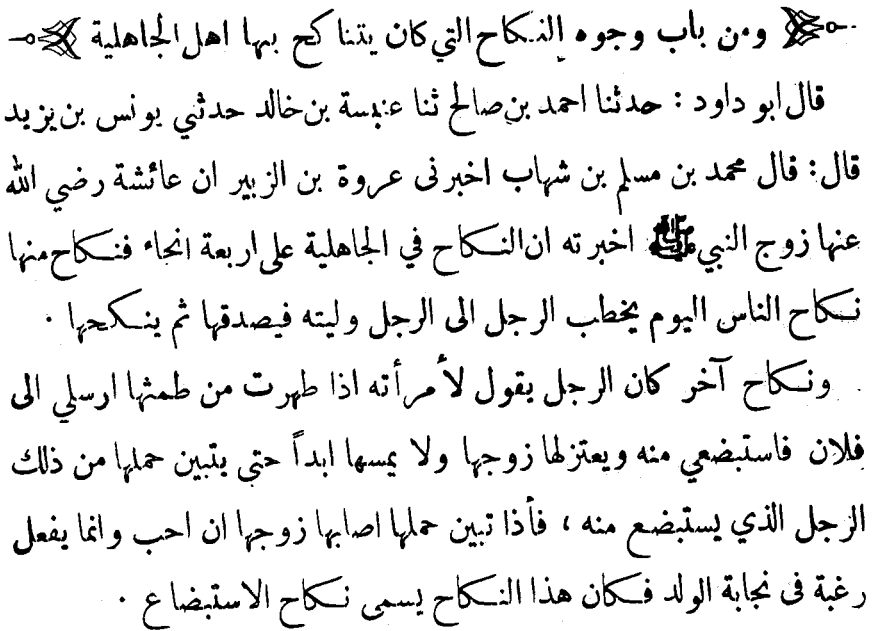 ومن باب وجوه النكاح التي كان يتناكح بها اهل الجاهلية
قال ابو داود : حدثنا احمد بن صالح ثنا عنبسة بن خالد حدثني يونس بن يزيد
قال : قال محمد بن مسلم بن شهاب اخبرنى عروة بن الزبير ان عائشة رضي الله
عنها زوج النبي ﷺ اخبرته ان النكاح في الجاهلية على اربعة انحاء فنكاح منها
نكاح الناس اليوم يخطب الرجل الى الرجل وليته فيصدقها ثم ينكحها ·
ونكاح آخر كان الرجل يقول لأمرأته اذا طهرت من طمثها ارسلي الى
فلان فاستبضعي منه ويعتزلها زوجها ولا يمسها ابداً حتى يتبين حملها من ذلك
الرجل الذي يستبضع منه ، فأذا تبين حملها اصابها زوجها ان احب وانما يفعل
رغبة فى نجابة الولد فكان هذا النكاح يسمى نكاح الاستبضاع ·